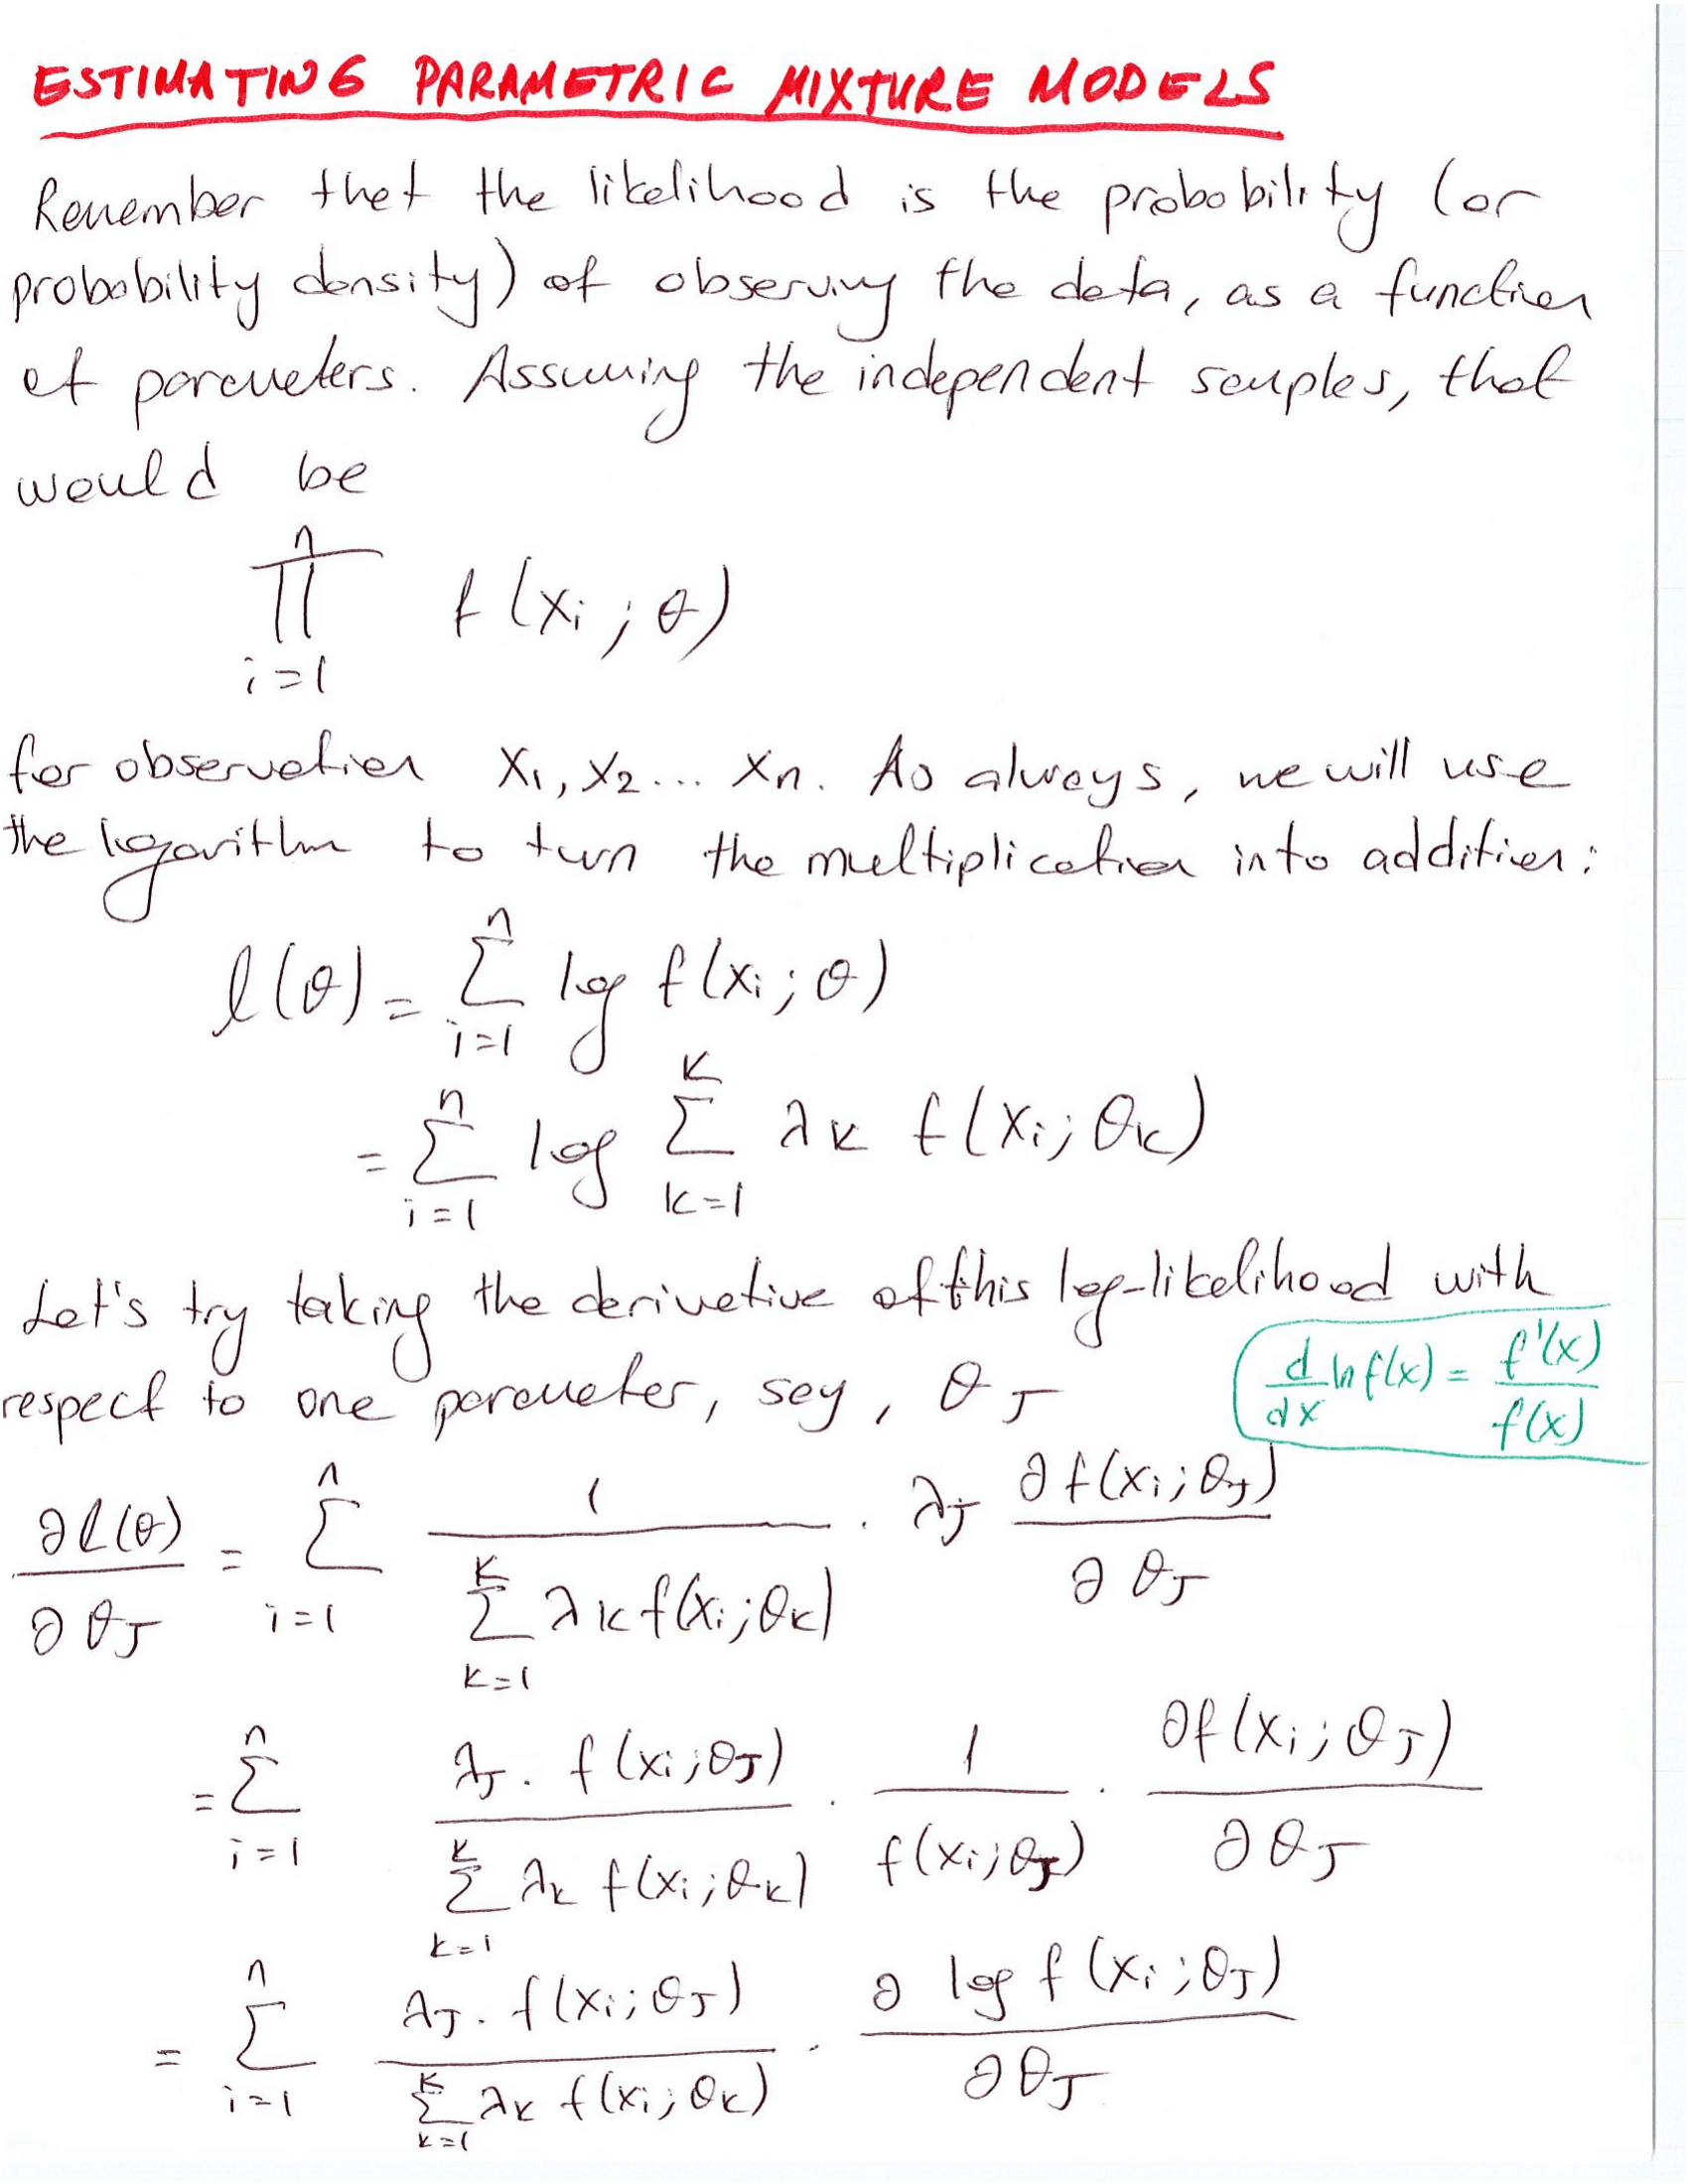 ESTIMATING PARAMETRIC MIXTURE MODELS
Remember that the likelihood is the probability (or
probability density) of observing the data, as a function
of parameters. Assuming the independent samples, that
would be
∏_{i=1}^{n} f(x_i ; θ)
for observation x_1, x_2 ... x_n. As always, we will use
the logarithm to turn the multiplication into addition:
l(θ) = ∑_{i=1}^{n} log f(x_i ; θ)
= ∑_{i=1}^{n} log ∑_{k=1}^{K} λ_k f(x_i ; θ_k)
Let's try taking the derivative of this log-likelihood with
respect to one parameter, say, θ_J
d/dx ln f(x) = f'(x) / f(x)
∂l(θ)/∂θ_J = ∑_{i=1}^{n} 1 / (∑_{k=1}^{K} λ_k f(x_i ; θ_k)) · λ_J ∂f(x_i ; θ_J)/∂θ_J
= ∑_{i=1}^{n} λ_J · f(x_i ; θ_J) / (∑_{k=1}^{K} λ_k f(x_i ; θ_k)) · 1/f(x_i ; θ_J) · ∂f(x_i ; θ_J)/∂θ_J
= ∑_{i=1}^{n} λ_J · f(x_i ; θ_J) / (∑_{k=1}^{K} λ_k f(x_i ; θ_k)) · ∂ log f(x_i ; θ_J)/∂θ_J